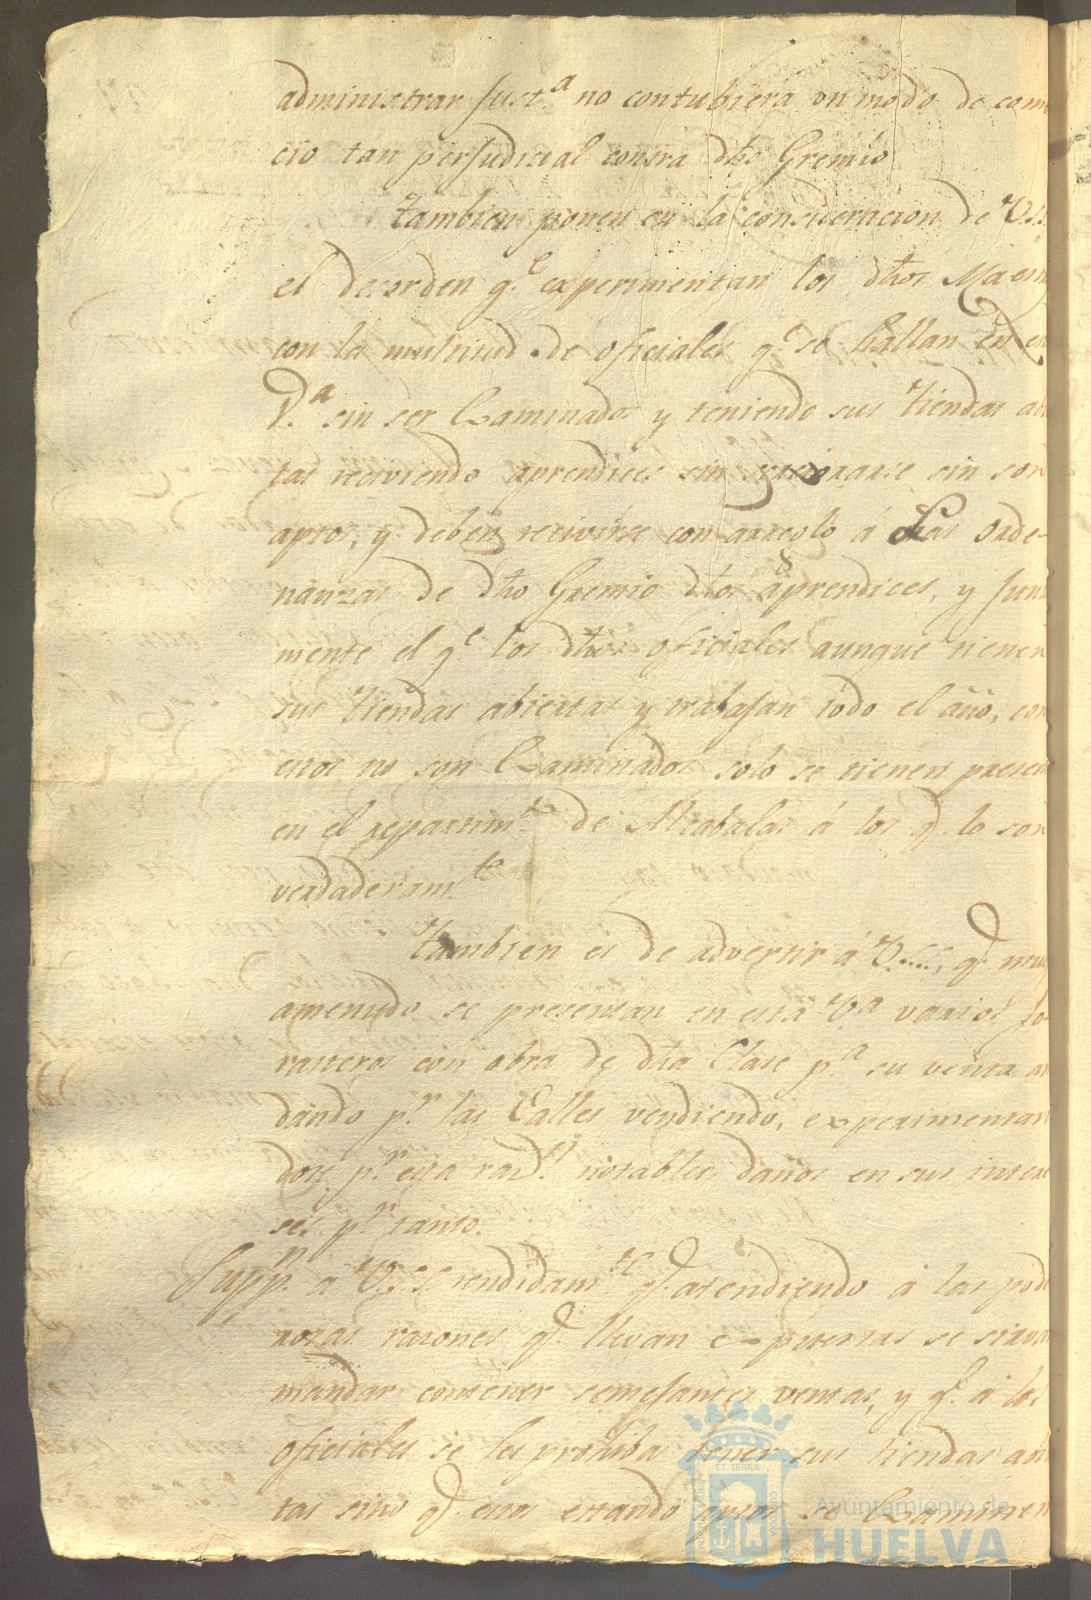 administrar Just.ª no contubiera un modo de com
cio tan perJudicial contra dho Gremio
tambien ponen en la consideracion de V.SS.
el desorden q.e experimentan los dhos Maem
con la multitud de oficiales q.e se hallan en e
V.ª sin ser Examinados y teniendo sus tiendas abi
tas reciviendo aprendices sin sin ser
aptos, y deben recivirse con arreglo á las orde-
nanzas de dho Gremio dhos aprendices, y Junt
mente el q.e los dhos oficiales aunque tienen
sus tiendas abiertas y trabajan todo el año, com
estos no son Examinados solo se tienen presen
en el repartim.to de Alcabalas á los q.e lo son
verdaderam.te
tambien es de advertir á V.SS. q.e muy
amenudo se presentan en esta V.ª varios fo-
rasteros con obra de dha Clase p.ª su venta an
dando p.r las Calles vendiendo, experimentan
dose p.r esta raz.n notables daños en sus intere
ses p.r tanto.
Supp.n a V.SS. rendidam.te q.e atendiendo á las pode
rosas rasones q.e llevan expuestas se sirva
mandar contener semejantes ventas, y q.e á los
oficiales se les prohiba tener sus tiendas abi
tas sino q.e estos estando aptos se Examinen
Ayuntamiento de
HUELVA